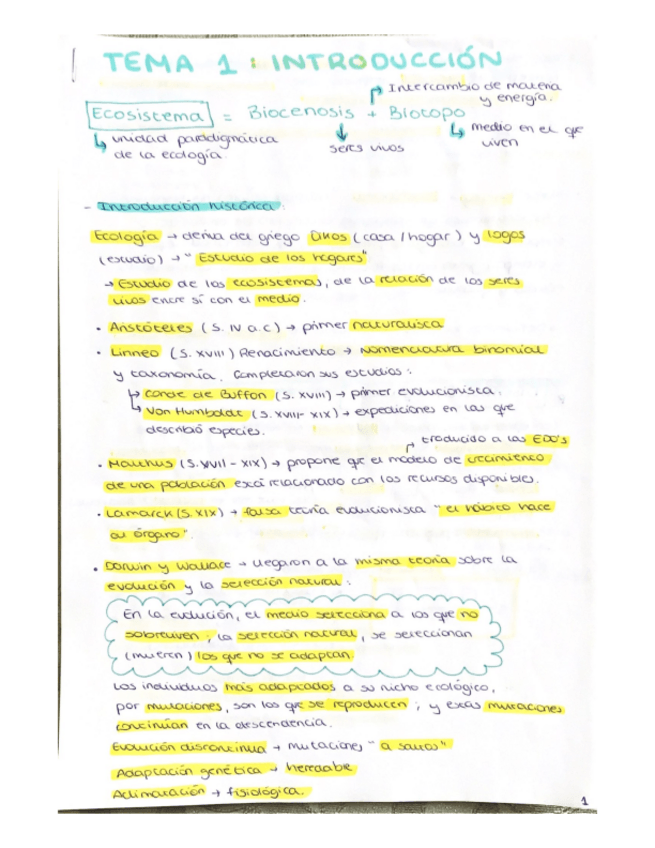 TEMA 1 : INTRODUCCIÓN
Intercambio de materia
y energía.
Ecosistema = Biocenosis + Biotopo
unidad paradigmática
de la ecología.
seres vivos
medio en el que
viven
- Introducción histórica :
Ecología → deriva del griego Oikos (casa / hogar) y logos
(estudio) → "Estudio de los hogares"
→ Estudio de los ecosistemas, de la relación de los seres
vivos entre sí con el medio.
• Aristóteles (S. IV a.c) → primer naturalista
• Linneo (S. XVIII) Renacimiento → Nomenclatura binomial
y taxonomía. Completaron sus estudios :
Conde de Buffon (S. XVIII) → primer evolucionista.
Von Humboldt (S. XVIII- XIX) → expediciones en las que
describió especies.
traducido a las EDO's
• Malthus (S. XVII - XIX) → propone qe el modelo de crecimiento
de una población está relacionado con los recursos disponibles.
• Lamarck (S. XIX) → falsa teoría evolucionista "el hábito hace
al órgano".
• Darwin y Wallace → llegaron a la misma teoría sobre la
evolución y la selección natural :
En la evolución, el medio selecciona a los que no
sobreviven ; la selección natural, se seleccionan
(mueren) los que no se adaptan.
Los individuos más adaptados a su nicho ecológico,
por mutaciones, son los que se reproducen ; y estas mutaciones
continúan en la descendencia.
Evolución discontinua → mutaciones "a saltos"
Adaptación genética → heredable
Aclimatación → fisiológica.
1